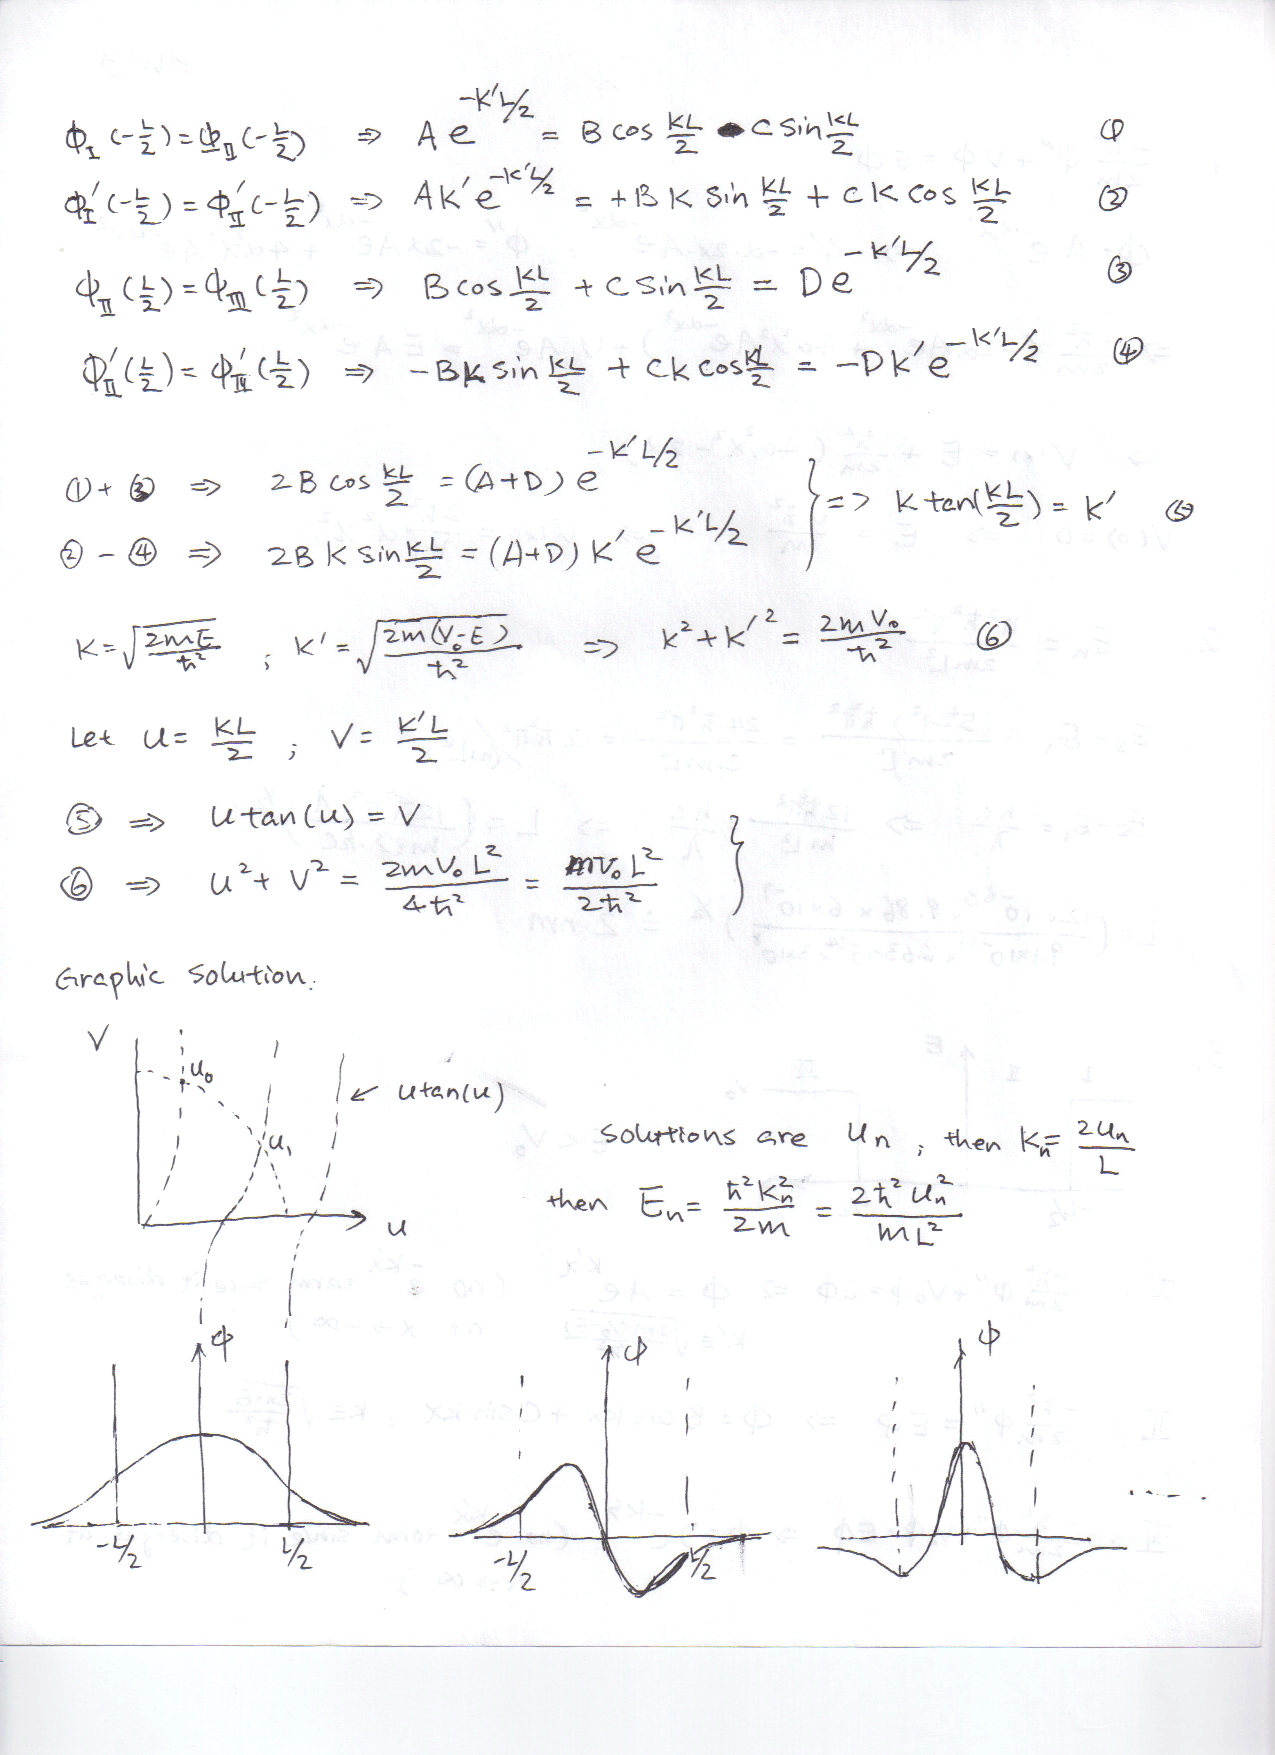 Φ_I(-L/2) = Φ_II(-L/2) ⇒ A e^{-k'L/2} = B cos kL/2 - C sin kL/2 ①
Φ_I'(-L/2) = Φ_II'(-L/2) ⇒ A k' e^{-k'L/2} = + B k sin kL/2 + C k cos kL/2 ②
Φ_II(L/2) = Φ_III(L/2) ⇒ B cos kL/2 + C sin kL/2 = D e^{-k'L/2} ③
Φ_II'(L/2) = Φ_III'(L/2) ⇒ -B k sin kL/2 + C k cos kL/2 = -D k' e^{-k'L/2} ④
① + ③ ⇒ 2B cos kL/2 = (A+D) e^{-k'L/2}
② - ④ ⇒ 2B k sin kL/2 = (A+D) k' e^{-k'L/2} } => k tan(kL/2) = k' ⑤
k = √(2mE/ħ²) ; k' = √(2m(V₀-E)/ħ²) ⇒ k² + k'² = 2mV₀/ħ² ⑥
Let u = kL/2 ; V = k'L/2
⑤ ⇒ u tan(u) = V
⑥ ⇒ u² + V² = 2mV₀L²/4ħ² = mV₀L²/2ħ² }
Graphic solution.
V
u₀
u₁
u tan(u)
u
Solutions are u_n , then k_n = 2u_n/L
then E_n = ħ²k_n²/2m = 2ħ²u_n²/mL²
Φ Φ Φ
-L/2 L/2 -L/2 L/2 .....